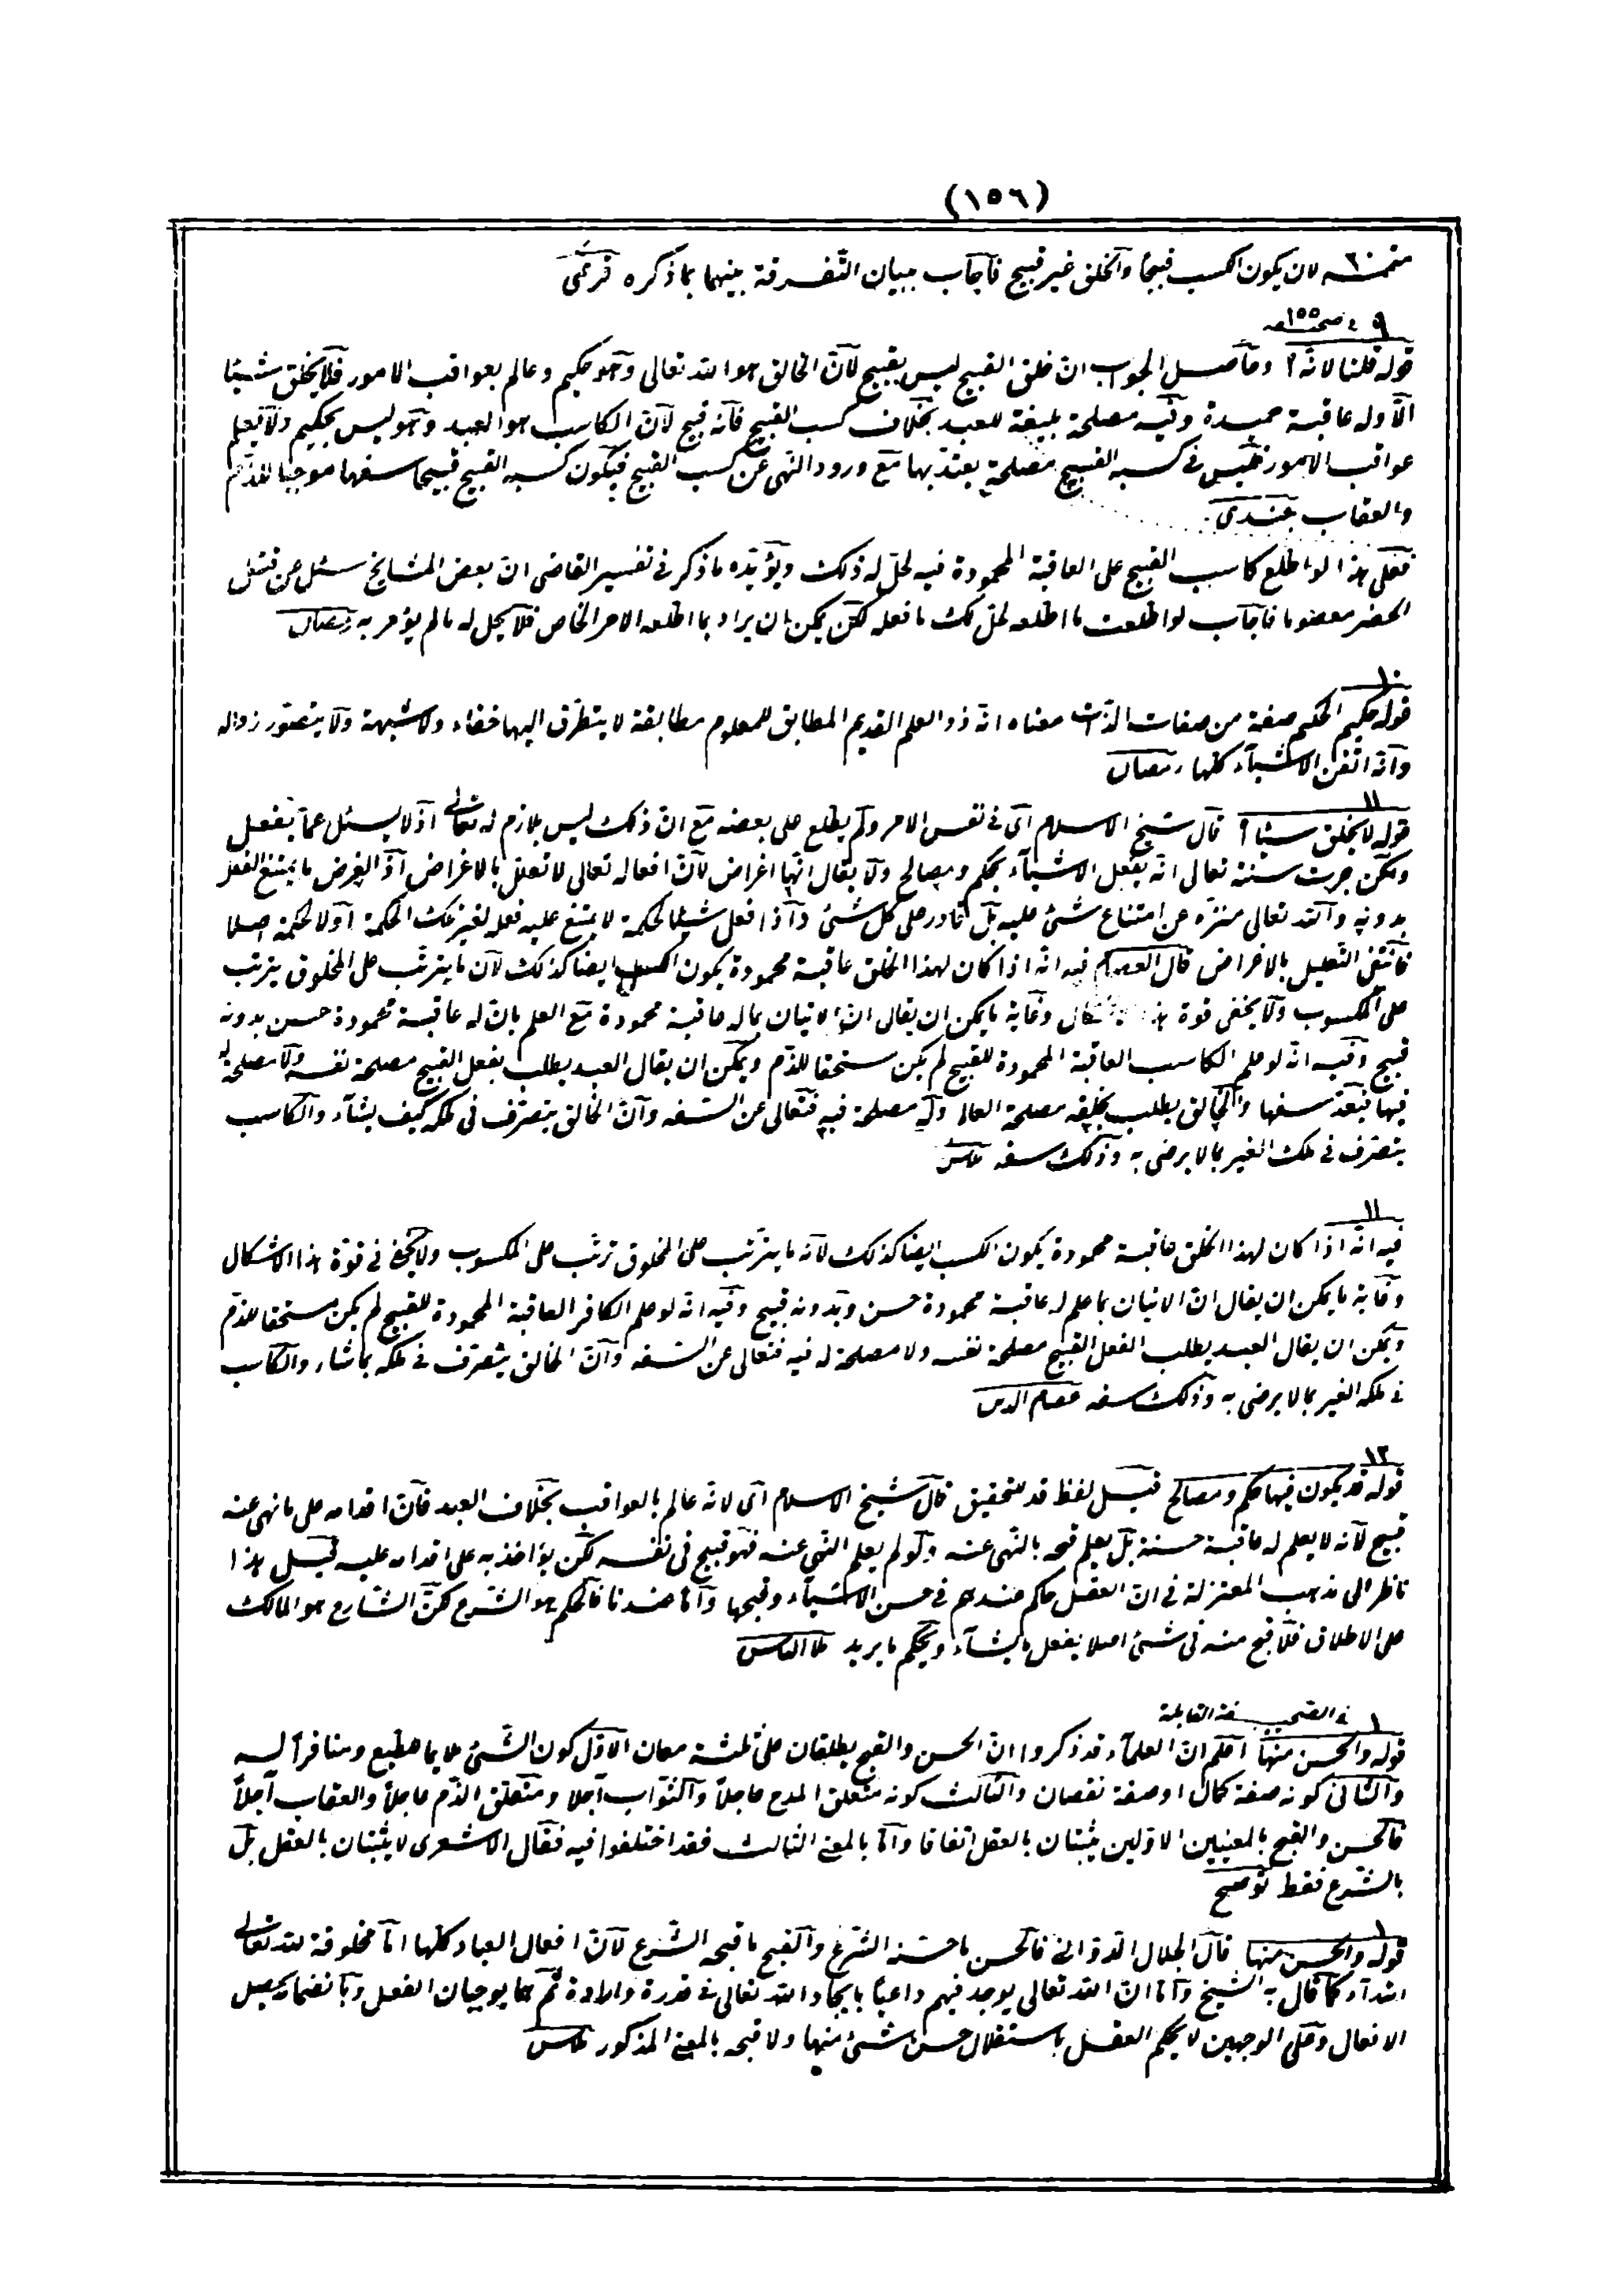 (١٥٦)
لان يكون الكسب قبيحاً والخلق غير قبيح فأجاب ببيان التفرقة بينهما بما ذكره
٩
قوله قلنا لانه وحاصل الجواب ان خلق القبيح ليس بقبيح لان الخالق هو الله تعالى وهو حكيم وعالم بعواقب الامور فلا يخلق شيئا
الا وله عاقبة حميدة وفيه مصلحة بليغة للعبد بخلاف كسب القبيح فانه قبيح لان الكاسب هو العبد وهو ليس بحكيم ولا يعلم
عواقب الامور فليس في كسبه القبيح مصلحة يعتد بها مع ورود النهى عن كسب القبيح فيكون كسبه القبيح قبيحا سفها موجبا للذم
والعقاب جندى
فعلى هذا لو اطلع كاسب القبيح على العاقبة المحمودة فيه لحل له ذلك ويؤيده ما ذكر في تفسير القاضى ان بعض المشايخ سئل عن قتل
الخضر معصوما فاجاب لو اطلعت ما اطلعه لحل لك ما فعله لكن يمكن ان يراد بما اطلعه الامر الخاص فلا يحل له ما لم يؤمر به رمضان
١٠
قوله حكيم الحكم صفة من صفات الذات معناه انه ذو العلم القديم المطابق للمعلوم مطابقة لا يتطرق اليها خفاء ولا شبهة ولا يتصور زواله
وانه اتقن الاشياء كلها رمضان
١١
قوله لا يخلق شيئا قال شيخ الاسلام اى في نفس الامر ولم يطلع على بعضه مع ان ذلك ليس بلازم له تعالى اذ لا يسئل عما يفعل
ولكن جرت سنته تعالى انه يفعل الاشياء بحكم ومصالح ولا يقال انها اغراض لان افعاله تعالى لا تعلل بالاغراض اذ الغرض ما يمتنع الفعل
بدونه والله تعالى منزه عن امتناع شئ عليه بل قادر على كل شئ واذا فعل شيئا لحكمة لا يمتنع عليه فعله لغير تلك الحكمة او لا لحكمة اصلا
فانتفى التعليل بالاغراض قال العصام فيه انه اذا كان لهذا الخلق عاقبة محمودة يكون الكسب ايضا كذلك لان ما يترتب على المخلوق يترتب
على المكسوب ولا يخفى قوة وغاية ما يمكن ان يقال ان الاتيان بما له عاقبة محمودة مع العلم بان له عاقبة محمودة حسن بدونه
قبيح وفيه انه لو علم الكاسب العاقبة المحمودة للقبيح لم يكن مستحقا للذم ويمكن ان يقال العبد يطلب بفعل القبيح مصلحة نفسه ولا مصلحة له
فيها فيعد سفها والخالق يطلب بخلقه مصلحة العالم وله مصلحة فيه فتعالى عن السفه وان الخالق يتصرف في ملكه كيف يشاء والكاسب
يتصرف في ملك الغير بما لا يرضى به وذلك سفه
١١
فيه انه اذا كان لهذا الخلق عاقبة محمودة يكون الكسب ايضا كذلك لانه ما يترتب على المخلوق ترتب على المكسوب ولا يخفى قوة هذا الاشكال
وغاية ما يمكن ان يقال ان الاتيان بما علم له عاقبة محمودة حسن وبدونه قبيح وفيه انه لو علم الكافر العاقبة المحمودة للقبيح لم يكن مستحقا للذم
ويمكن ان يقال العبد يطلب الفعل القبيح مصلحة نفسه ولا مصلحة له فيه فتعالى عن السفه وان الخالق يتصرف في ملكه بما شاء والكاسب
في ملكه الغير بما لا يرضى به وذلك سفه عصام الدين
١٢
قوله قد يكون فيها حكم ومصالح قيل لفظ قد للتحقيق قال شيخ الاسلام اى لانه عالم بالعواقب بخلاف العبد فان اقدامه على ما نهى عنه
قبيح لانه لا يعلم له عاقبة حسنة بل يعلم قبحه بالنهى عنه ولو لم يعلم النهي عنه فهو قبيح في نفسه لكن يؤاخذ به على اقدامه عليه قيل هذا
ناظر الى مذهب المعتزلة في ان العقل حاكم عندهم في حسن الاشياء وقبحها واما عندنا فالحكم هو الشرع لكن الشارع هو المالك
على الاطلاق فلا قبح منه في شئ اصلا يفعل ما يشاء ويحكم ما يريد
١
قوله والحسن منها اعلم ان العلماء قد ذكروا ان الحسن والقبح يطلقان على ثلثة معان الاول كون الشئ ملايما للطبع ومنافرا له
والثاني كونه صفة كمال او صفة نقصان والثالث كونه متعلق المدح عاجلاً والثواب آجلا ومتعلق الذم عاجلاً والعقاب آجلاً
فالحسن والقبح بالمعنيين الاولين يثبتان بالعقل اتفاقا واما بالمعنى الثالث فقد اختلفوا فيه فقال الاشعرى لا يثبتان بالعقل بل
بالشرع فقط توضيح
١
قوله والحسن منها قال الجلال الدوانى فالحسن ما حسنه الشرع والقبح ما قبحه الشرع لان افعال العباد كلها اما مخلوقة لله تعالى
ابتداء كما قال به الشيخ واما ان الله تعالى يوجد فيهم داعيا بايجاد الله تعالى قدرة وارادة ثم هما يوجبان الفعل وبانضمامه يحصل
الافعال وعلى الوجهين لا يحكم العقل باستقلال حسن شئ منها ولا قبحه بالمعنى المذكور